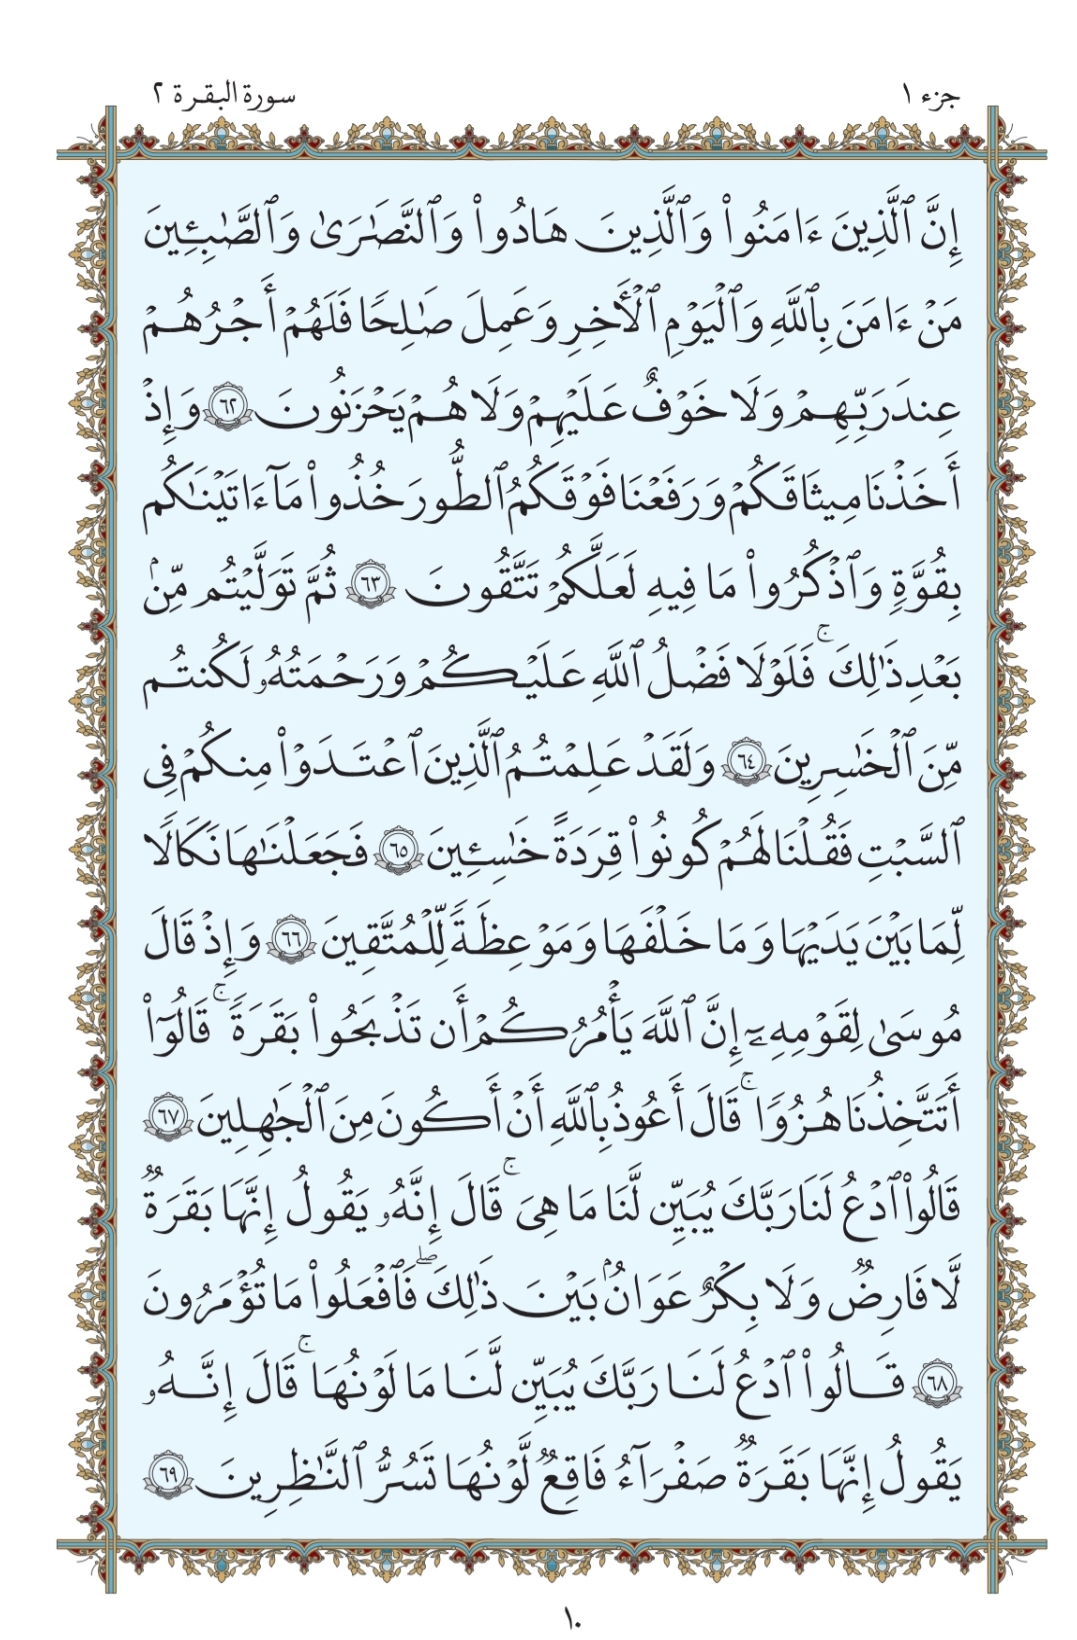 جزء ١
سورة البقرة ٢
إِنَّ ٱلَّذِينَ ءَامَنُوا۟ وَٱلَّذِينَ هَادُوا۟ وَٱلنَّصَـٰرَىٰ وَٱلصَّـٰبِـِٔينَ
مَنْ ءَامَنَ بِٱللَّهِ وَٱلْيَوْمِ ٱلْـَٔاخِرِ وَعَمِلَ صَـٰلِحًا فَلَهُمْ أَجْرُهُمْ
عِندَ رَبِّهِمْ وَلَا خَوْفٌ عَلَيْهِمْ وَلَا هُمْ يَحْزَنُونَ ٦٢ وَإِذْ
أَخَذْنَا مِيثَـٰقَكُمْ وَرَفَعْنَا فَوْقَكُمُ ٱلطُّورَ خُذُوا۟ مَآ ءَاتَيْنَـٰكُم
بِقُوَّةٍ وَٱذْكُرُوا۟ مَا فِيهِ لَعَلَّكُمْ تَتَّقُونَ ٦٣ ثُمَّ تَوَلَّيْتُم مِّنۢ
بَعْدِ ذَٰلِكَ ۚ فَلَوْلَا فَضْلُ ٱللَّهِ عَلَيْكُمْ وَرَحْمَتُهُۥ لَكُنتُم
مِّنَ ٱلْخَـٰسِرِينَ ٦٤ وَلَقَدْ عَلِمْتُمُ ٱلَّذِينَ ٱعْتَدَوْا۟ مِنكُمْ فِى
ٱلسَّبْتِ فَقُلْنَا لَهُمْ كُونُوا۟ قِرَدَةً خَـٰسِـِٔينَ ٦٥ فَجَعَلْنَـٰهَا نَكَـٰلًا
لِّمَا بَيْنَ يَدَيْهَا وَمَا خَلْفَهَا وَمَوْعِظَةً لِّلْمُتَّقِينَ ٦٦ وَإِذْ قَالَ
مُوسَىٰ لِقَوْمِهِۦٓ إِنَّ ٱللَّهَ يَأْمُرُكُمْ أَن تَذْبَحُوا۟ بَقَرَةً ۚ قَالُوٓا۟
أَتَتَّخِذُنَا هُزُوًا ۚ قَالَ أَعُوذُ بِٱللَّهِ أَنْ أَكُونَ مِنَ ٱلْجَـٰهِلِينَ ٦٧
قَالُوا۟ ٱدْعُ لَنَا رَبَّكَ يُبَيِّن لَّنَا مَا هِىَ ۚ قَالَ إِنَّهُۥ يَقُولُ إِنَّهَا بَقَرَةٌ
لَّا فَارِضٌ وَلَا بِكْرٌ عَوَانٌۢ بَيْنَ ذَٰلِكَ ۖ فَٱفْعَلُوا۟ مَا تُؤْمَرُونَ
٦٨ قَالُوا۟ ٱدْعُ لَنَا رَبَّكَ يُبَيِّن لَّنَا مَا لَوْنُهَا ۚ قَالَ إِنَّهُۥ
يَقُولُ إِنَّهَا بَقَرَةٌ صَفْرَآءُ فَاقِعٌ لَّوْنُهَا تَسُرُّ ٱلنَّـٰظِرِينَ ٦٩
١٠